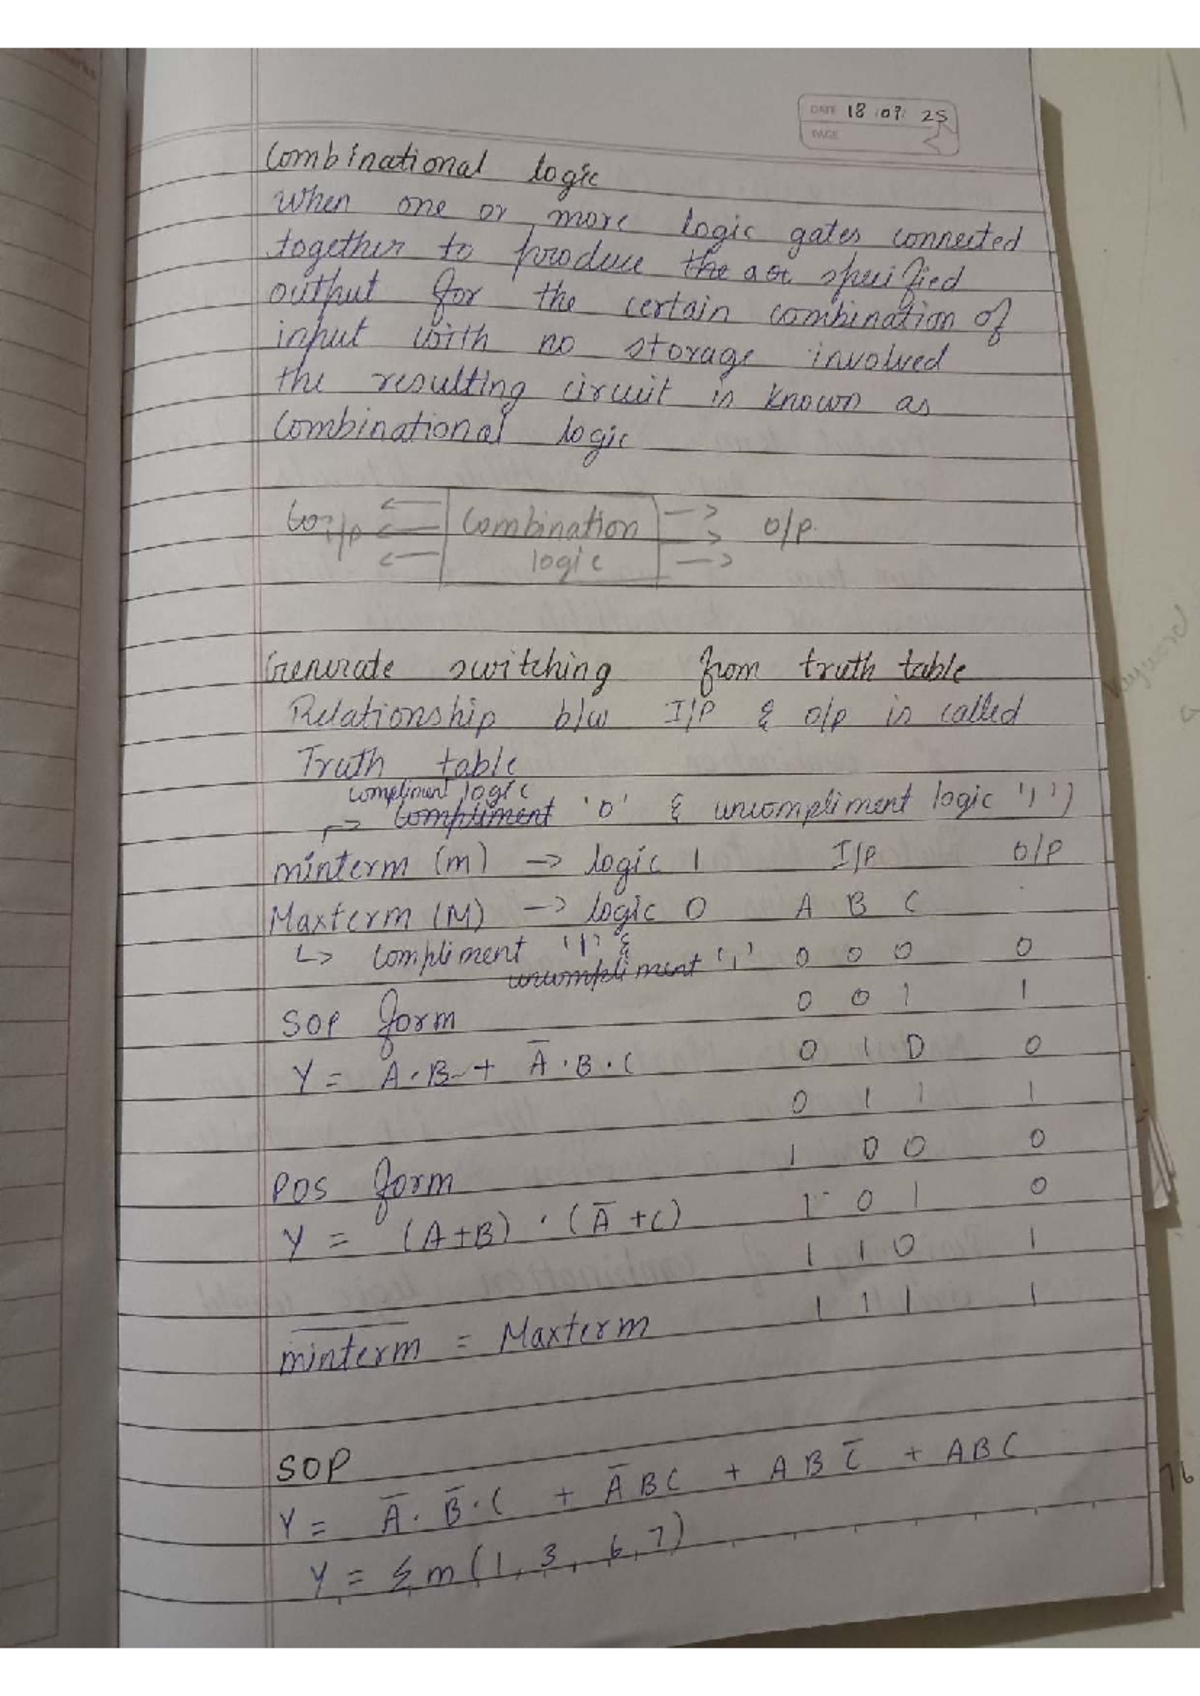 DATE 18 09 25
PAGE
Combinational logic
When one or more logic gates connected
together to produce the a specified
output for the certain combination of
input with no storage involved
the resulting circuit is known as
Combinational logic
i/p Combination O/P.
logic
Generate switching from truth table
Relationship b/w I/P & o/p is called
Truth table
compliment logic
→ Compliment '0' & uncompliment logic '1')
minterm (m) → logic 1 I/P O/P
Maxterm (M) → logic 0 A B C
↳ compliment '1' &
uncompliment '1' 0 0 0 0
SOP form 0 0 1 1
Y = A·B + A̅·B·C 0 1 0 0
0 1 1 1
POS form 1 0 0 0
Y = (A+B) · (A̅+C) 1 0 1 0
1 1 0 1
m̅i̅n̅t̅e̅r̅m̅ = Maxterm 1 1 1 1
SOP
Y = A̅·B̅·C + A̅BC + ABC̅ + ABC
Y = Σm(1, 3, 6, 7)